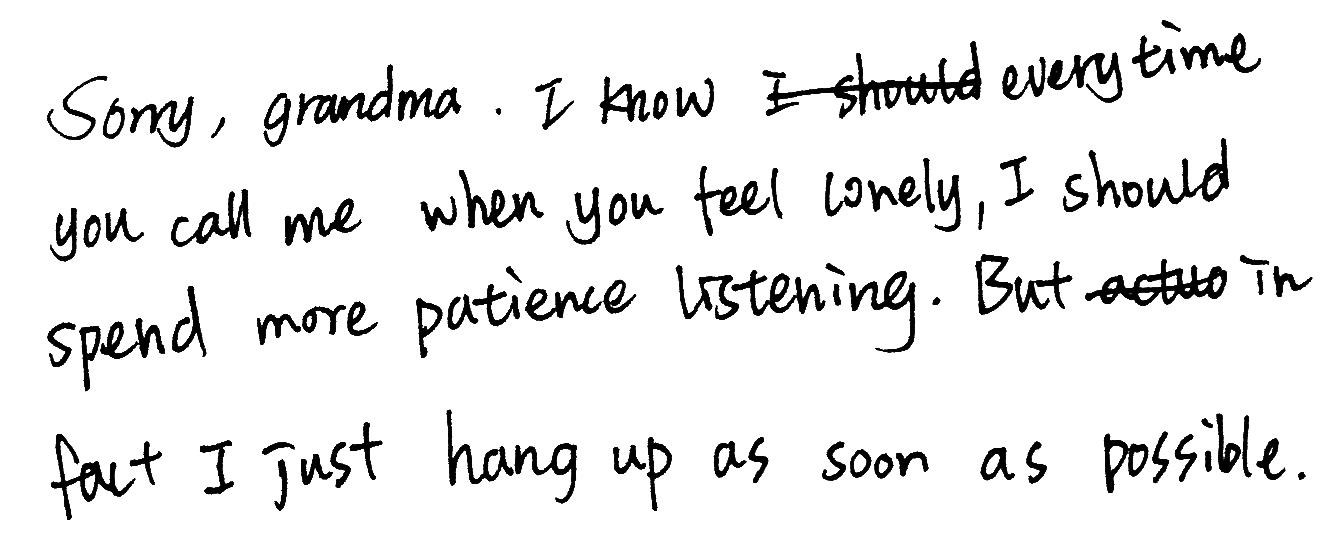 Sorry, grandma. I know I should every time
you call me when you feel lonely, I should
spend more patience listening. But actuo in
fact I just hang up as soon as possible.